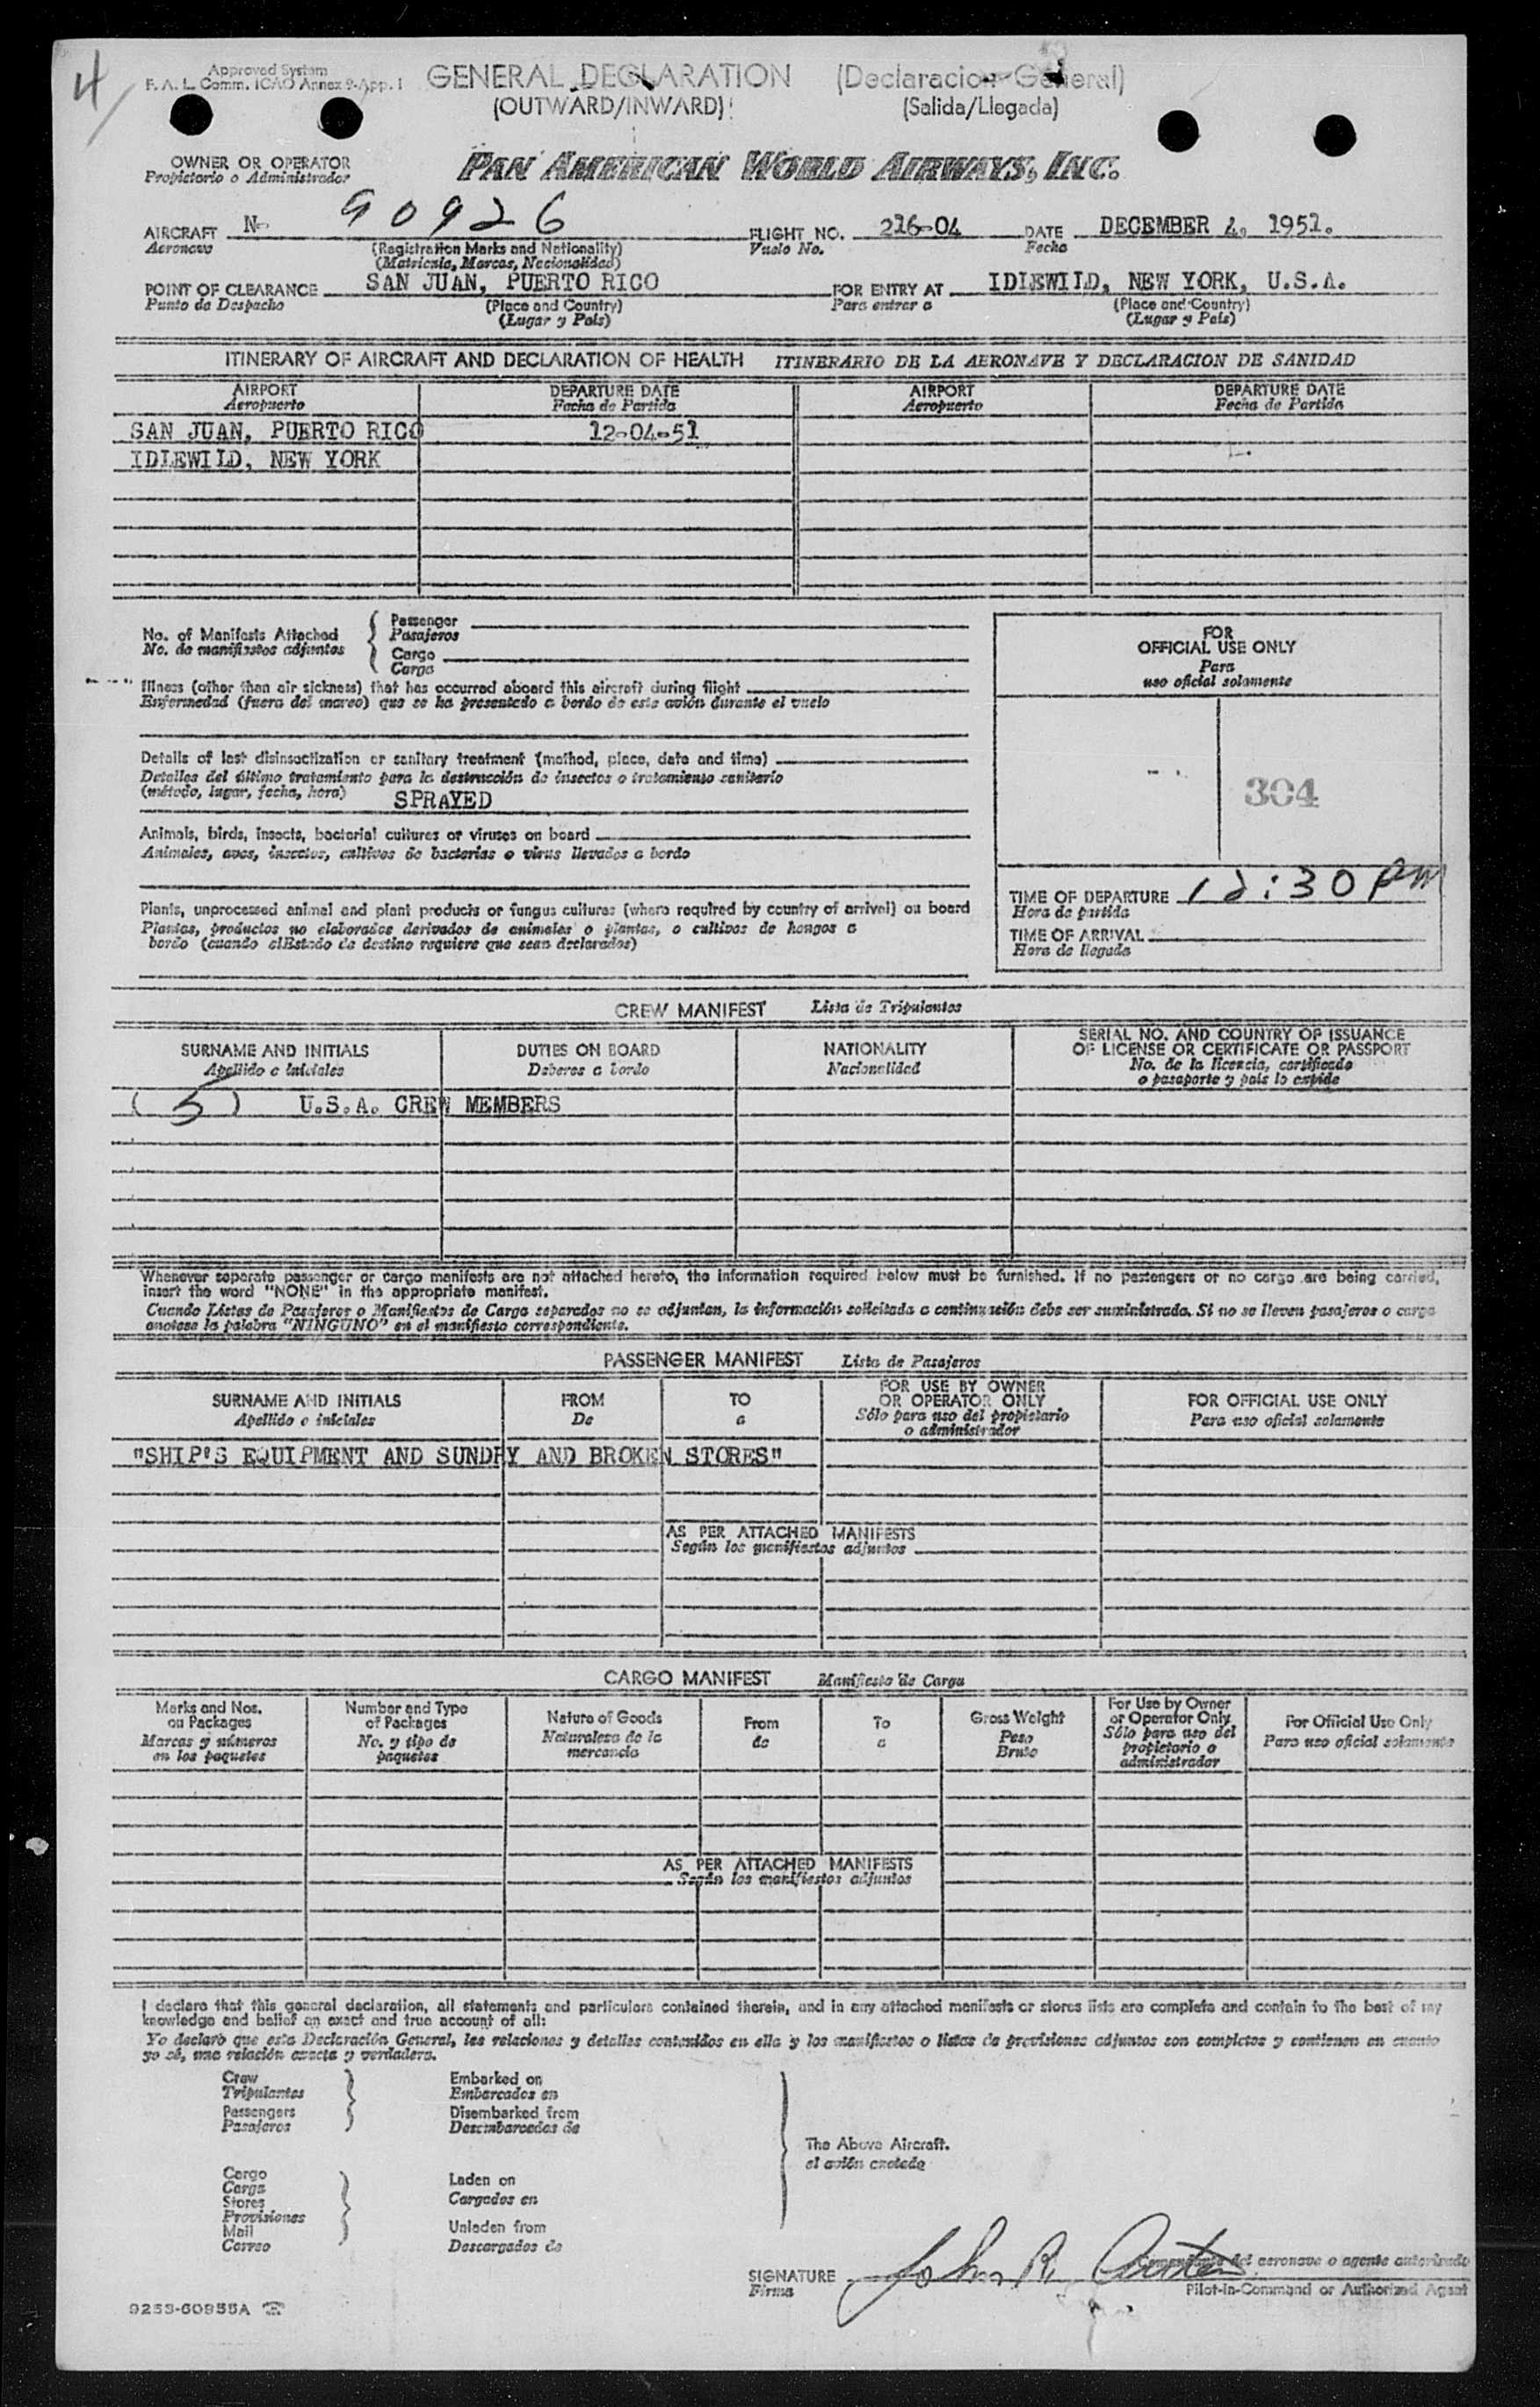 4/
Approved System
F. A. L. Comm. ICAO Annex 9-App. I
GENERAL DECLARATION (Declaracion General)
(OUTWARD/INWARD) (Salida/Llegada)
OWNER OR OPERATOR
Propietario o Administrador
PAN AMERICAN WORLD AIRWAYS, INC.
AIRCRAFT N- 90926 FLIGHT NO. 216-04 DATE DECEMBER 4, 1951.
Aeronave (Registration Marks and Nationality) Vuelo No. Fecha
(Matricula, Marcas, Nacionalidad)
POINT OF CLEARANCE SAN JUAN, PUERTO RICO FOR ENTRY AT IDLEWILD, NEW YORK, U.S.A.
Punto de Despacho (Place and Country) Para entrar a (Place and Country)
(Lugar y Pais) (Lugar y Pais)
ITINERARY OF AIRCRAFT AND DECLARATION OF HEALTH ITINERARIO DE LA AERONAVE Y DECLARACION DE SANIDAD
AIRPORT DEPARTURE DATE AIRPORT DEPARTURE DATE
Aeropuerto Fecha de Partida Aeropuerto Fecha de Partida
SAN JUAN, PUERTO RICO 12-04-51
IDLEWILD, NEW YORK
No. of Manifests Attached
No. de manifiestos adjuntos
Passenger
Pasajeros
Cargo
Carga
Illness (other than air sickness) that has occurred aboard this aircraft during flight
Enfermedad (fuera del mareo) que se ha presentado a bordo de este avión durante el vuelo
Details of last disinsectization or sanitary treatment (method, place, date and time)
Detalles del último tratamiento para la destrucción de insectos o tratamiento sanitario
(método, lugar, fecha, hora) SPRAYED
Animals, birds, insects, bacterial cultures or viruses on board
Animales, aves, insectos, cultivos de bacterias o virus llevados a bordo
Plants, unprocessed animal and plant products or fungus cultures (where required by country of arrival) on board
Plantas, productos no elaborados derivados de animales o plantas, o cultivos de hongos a
bordo (cuando elEstado de destino requiere que sean declarados)
FOR
OFFICIAL USE ONLY
Para
uso oficial solamente
304
TIME OF DEPARTURE 12:30 PM
Hora de partida
TIME OF ARRIVAL
Hora de llegada
CREW MANIFEST Lista de Tripulantes
SURNAME AND INITIALS DUTIES ON BOARD NATIONALITY SERIAL NO. AND COUNTRY OF ISSUANCE
OF LICENSE OR CERTIFICATE OR PASSPORT
Apellido e iniciales Deberes a bordo Nacionalidad No. de la licencia, certificado
o pasaporte y pais lo expide
( 5 ) U.S.A. CREW MEMBERS
Whenever separate passenger or cargo manifests are not attached hereto, the information required below must be furnished. If no pastengers or no cargo are being carried,
insert the word "NONE" in the appropriate manifest.
Cuando Listas de Pasajeros o Manifiestos de Carga separados no se adjunten, la información solicitada a continuación debe ser suministrada. Si no se lleven pasajeros o carga
anotese la palabra "NINGUNO" en el manifiesto correspondiente.
PASSENGER MANIFEST Lista de Pasajeros
SURNAME AND INITIALS FROM TO FOR USE BY OWNER
OR OPERATOR ONLY FOR OFFICIAL USE ONLY
Apellido e iniciales De a Sólo para uso del propietario
o administrador Para uso oficial solamente
"SHIP'S EQUIPMENT AND SUNDRY AND BROKEN STORES"
AS PER ATTACHED MANIFESTS
Según los manifiestos adjuntos
CARGO MANIFEST Manifiesto de Carga
Marks and Nos.
on Packages
Marcas y números
en los paquetes
Number and Type
of Packages
No. y tipo de
paquetes
Nature of Goods
Naturaleza de la
mercancia
From
de
To
a
Gross Weight
Peso
Bruto
For Use by Owner
or Operator Only
Sólo para uso del
propietario o
administrador
For Official Use Only
Para uso oficial solamente
AS PER ATTACHED MANIFESTS
Según los manifiestos adjuntos
I declare that this general declaration, all statements and particulars contained therein, and in any attached manifests or stores lists are complete and contain to the best of my
knowledge and belief an exact and true account of all:
Yo declaro que esta Declaración General, las relaciones y detalles contenidos en ella y los manifiestos o listas de provisiones adjuntos son completos y contienen en cuanto
yo sé, una relación exacta y verdadera.
Crew
Tripulantes
Passengers
Pasajeros
Embarked on
Embarcados en
Disembarked from
Desembarcados de
The Above Aircraft.
el avión anotado
Cargo
Carga
Stores
Provisiones
Mail
Correo
Laden on
Cargados en
Unladen from
Descargados de
SIGNATURE John R.
Firma
Comandante del aeronave o agente autorizado
Pilot-in-Command or Authorized Agent
9253-60955A